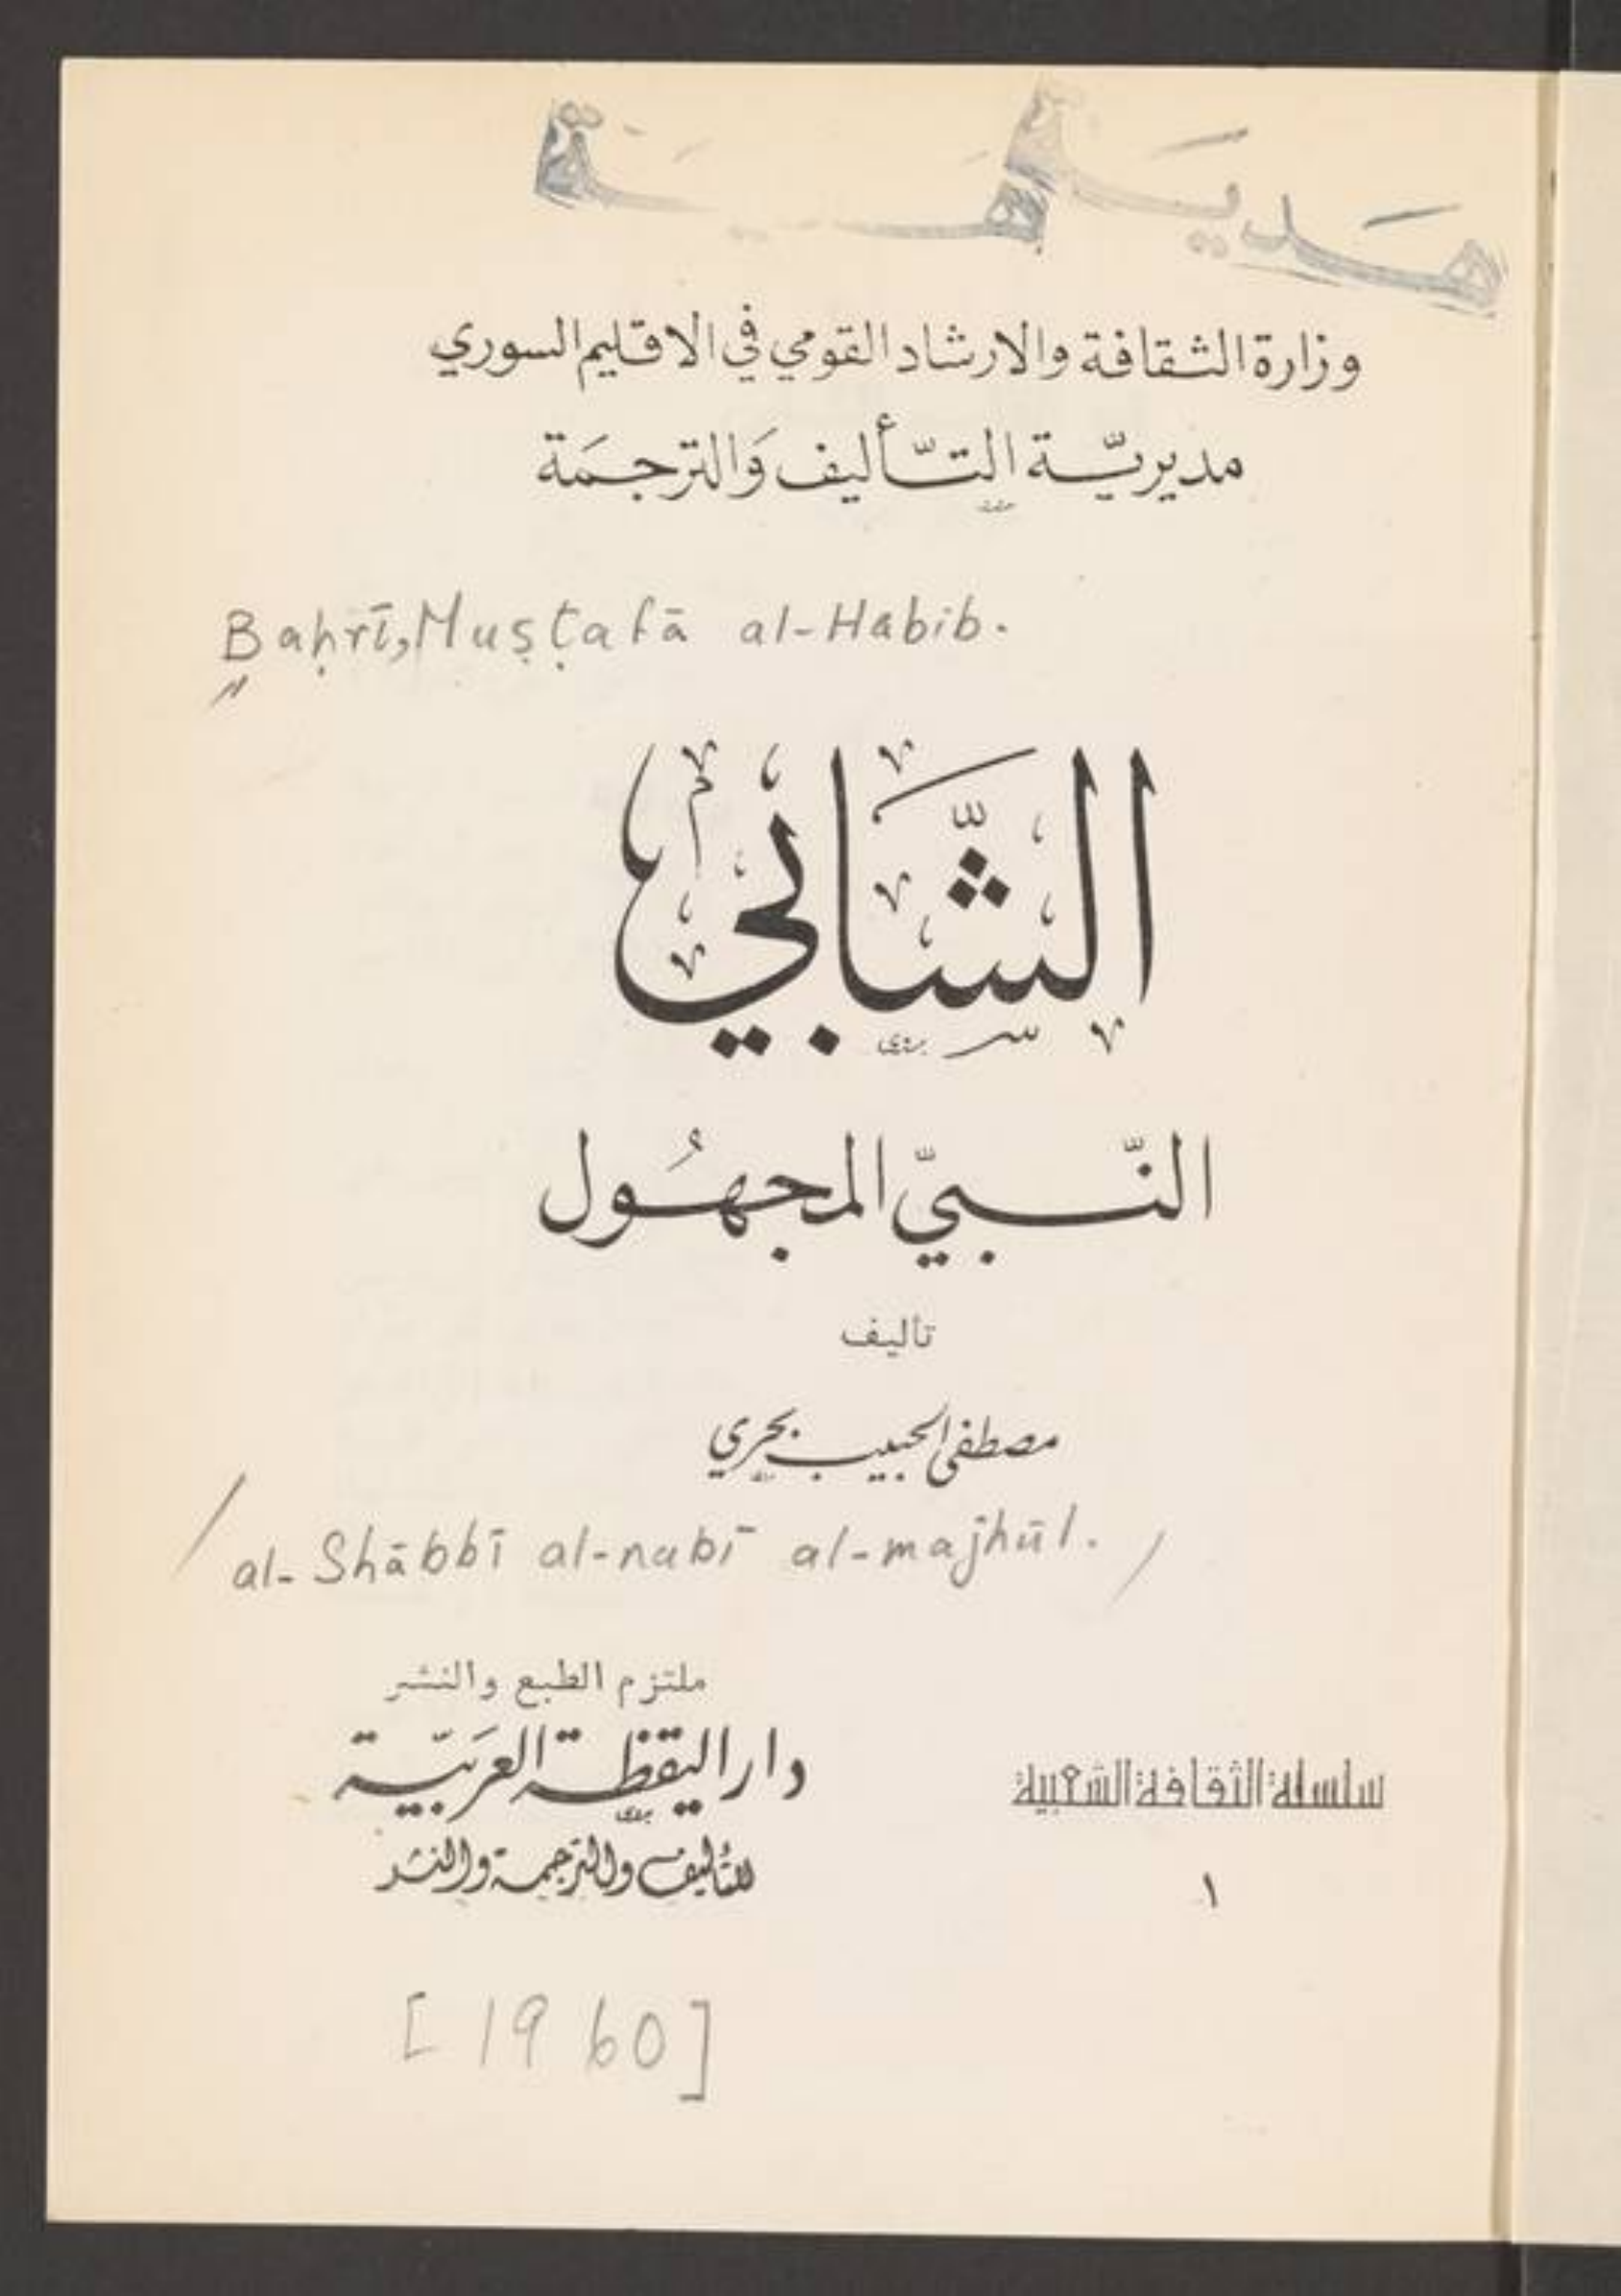 هَديَة هَديَة
وزارة الثقافة والارشاد القومي في الاقليم السوري
مديريّة التّأليف وَالترجمَة
Baḥrī, Muṣṭafā al-Habib.
الشَّابّي
النّبيّ المجهُول
تأليف
مصطفى الحبيب بحري
al-Shābbī al-nabī al-majhūl.
ملتزم الطبع والنشر
دار اليقظة العرَبيّة
للتأليف والترجمة والنشر
سلسلة الثقافة الشعبية
١
[1960]